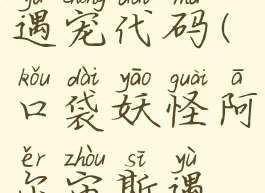 yù chǒng dài mǎ
遇宠代码(
kǒu dài yāo guài ā
口袋妖怪阿
ěr zhòu sī yù
尔宙斯遇